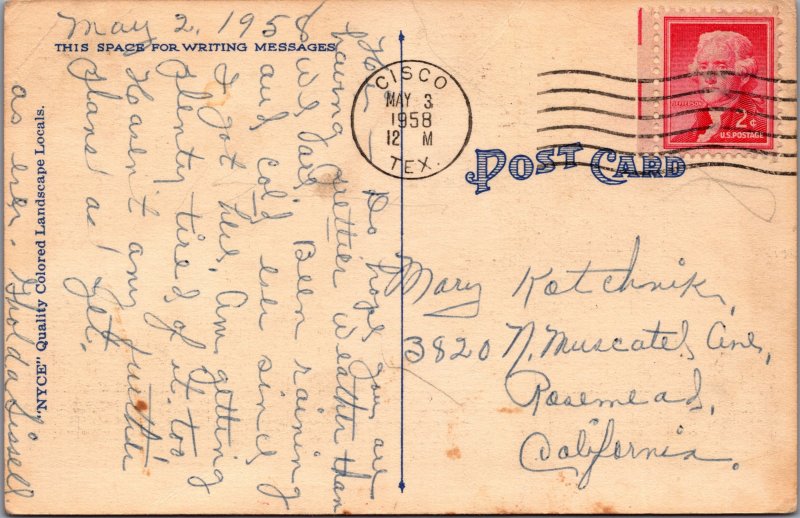 May 2, 1958
THIS SPACE FOR WRITING MESSAGES
Hi — Do hope you are
having prettier weather than
we are. Been raining
and cold ever since
I got here. Am getting
plenty tired of it too
Haven't any further
plans as yet.
as ever. Sissell
"NYCE" Quality Colored Landscape Locals.
CISCO
MAY 3
1958
12 M
TEX.
JEFFERSON
2¢
U.S. POSTAGE
POST CARD
Mary Kotchnik,
3820 N. Muscatel Ave,
Rosemead,
California.